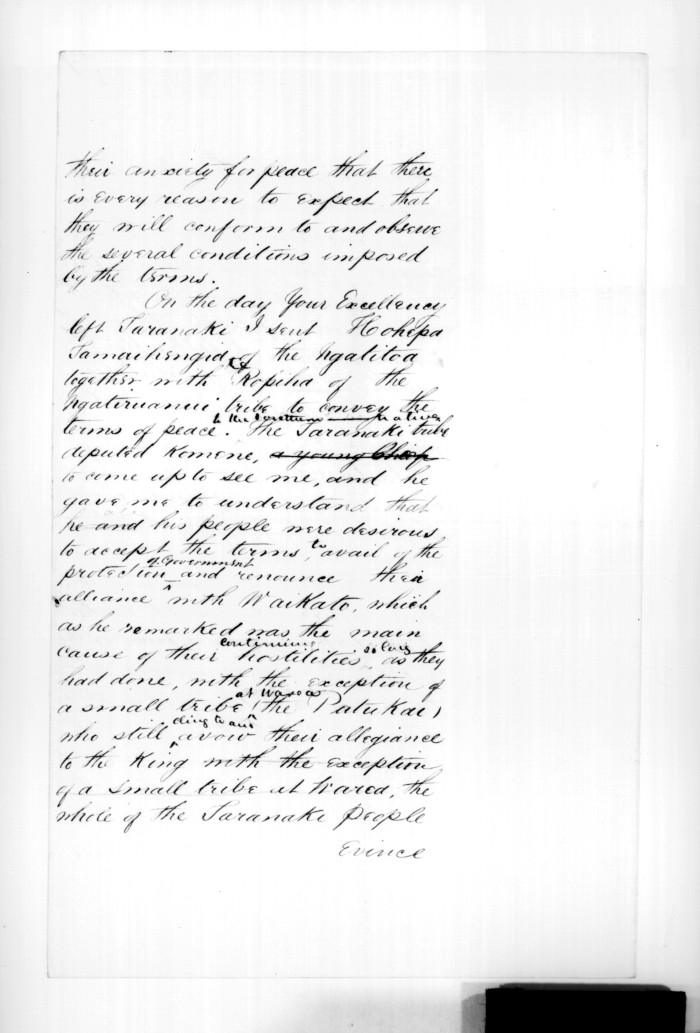 their anxiety for peace that there
is every reason to expect that
they will conform to and observe
the several conditions imposed
by the terms.
On the day Your Excellency
left Taranaki I sent Hohepa
Tamaihengia of the Ngatitoa
together with Ropiha of the
Ngatiruanui tribe to convey the
to the natives
terms of peace. The Taranaki tribe
deputed Komene, a young Chief
to come up to see me, and he
gave me to understand that
he and his people were desirous
to accept the terms, to avail of the
of Government
protection and renounce their
alliance with Waikato, which
as he remarked was the main
continuing so long
cause of their hostilities, as they
had done, with the exception of
at Warea
a small tribe (the Patukai)
cling to and
who still avow their allegiance
to the King with the exception
of a small tribe at Warea, the
whole of the Taranaki People
Evince